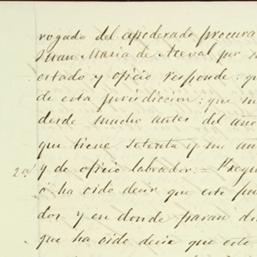 rogado del apoderado procura
Juan Maria de Aceval por su
estado y oficio responde: q
de esta jurisdiccion: que
desde mucho antes del año
que tiene setenta y un an
2a. y de oficio labrador. = Preg
o ha oido decir que este pu
dos y en donde paran di
que ha oido decir que este